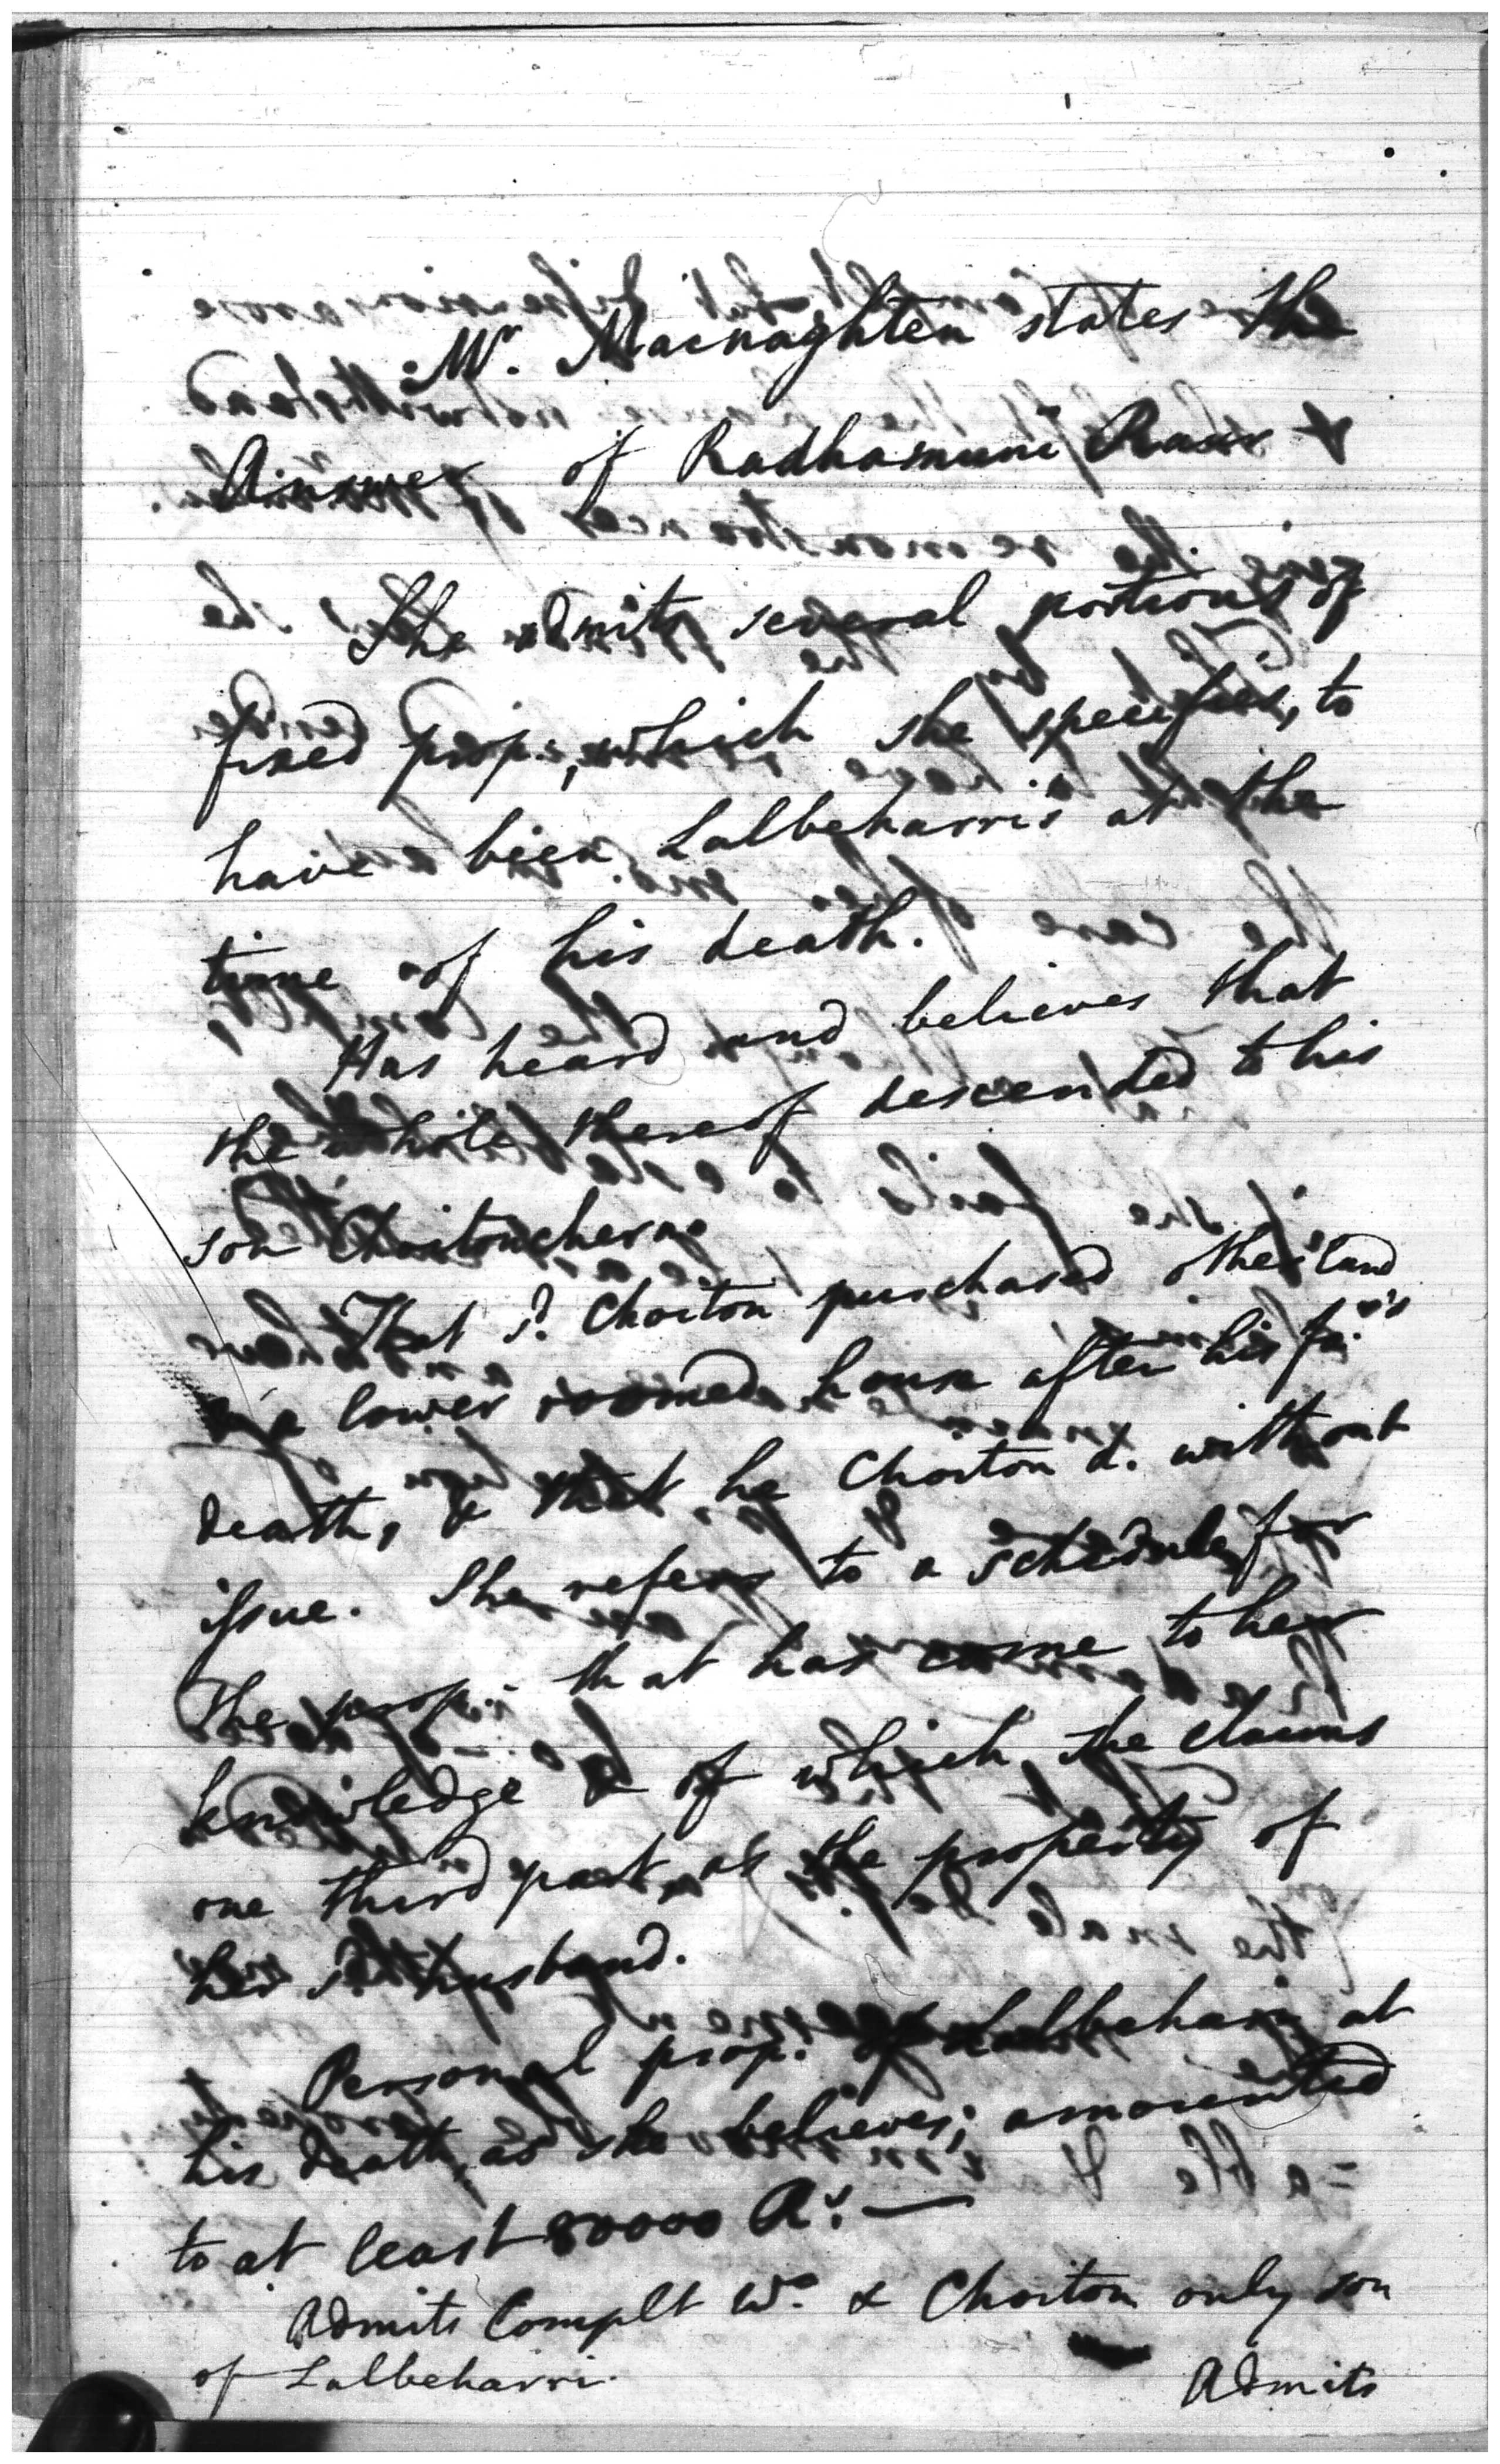 Mr. Macnaghten states the
Answer of Radhamuni Raur
She admits several portions of
fixed prop:, which she specifies, to
have been Lalbeharri's at the
time of his death.
Has heard and believes that
the whole thereof descended to his
son Choitoncherno
That sd. Choiton purchased other land
& a lower roomed house after his far's
death, & that he Choiton d. without
issue. She refers to a schedule for
the prop: that has come to her
knowledge & of which she claims
one third part as the property of
her sd husband.
Personal prop: of Lalbeharri at
his death, as she believes, amounted
to at least 80000 Rs. —
Admits Complt Wo. & Choiton only son
of Lalbeharri.
Admits